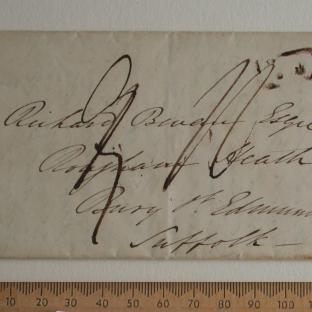 Richard Bevan Esqre
Rougham Heath
Bury St. Edmun
Suffolk
10 20 30 40 50 60 70 80 90 100